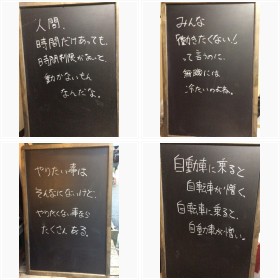 人間、
時間だけあっても、
時間制限がないと
動かないもん
なんだな。
みんな
「働きたくない!」
って言うのに、
無職には
冷たいのよね。
やりたい事は
そんなにないけど、
やりたくない事なら
たくさんある。
自動車に乗ると
自転車が憎く、
自転車に乗ると、
自動車が憎い。